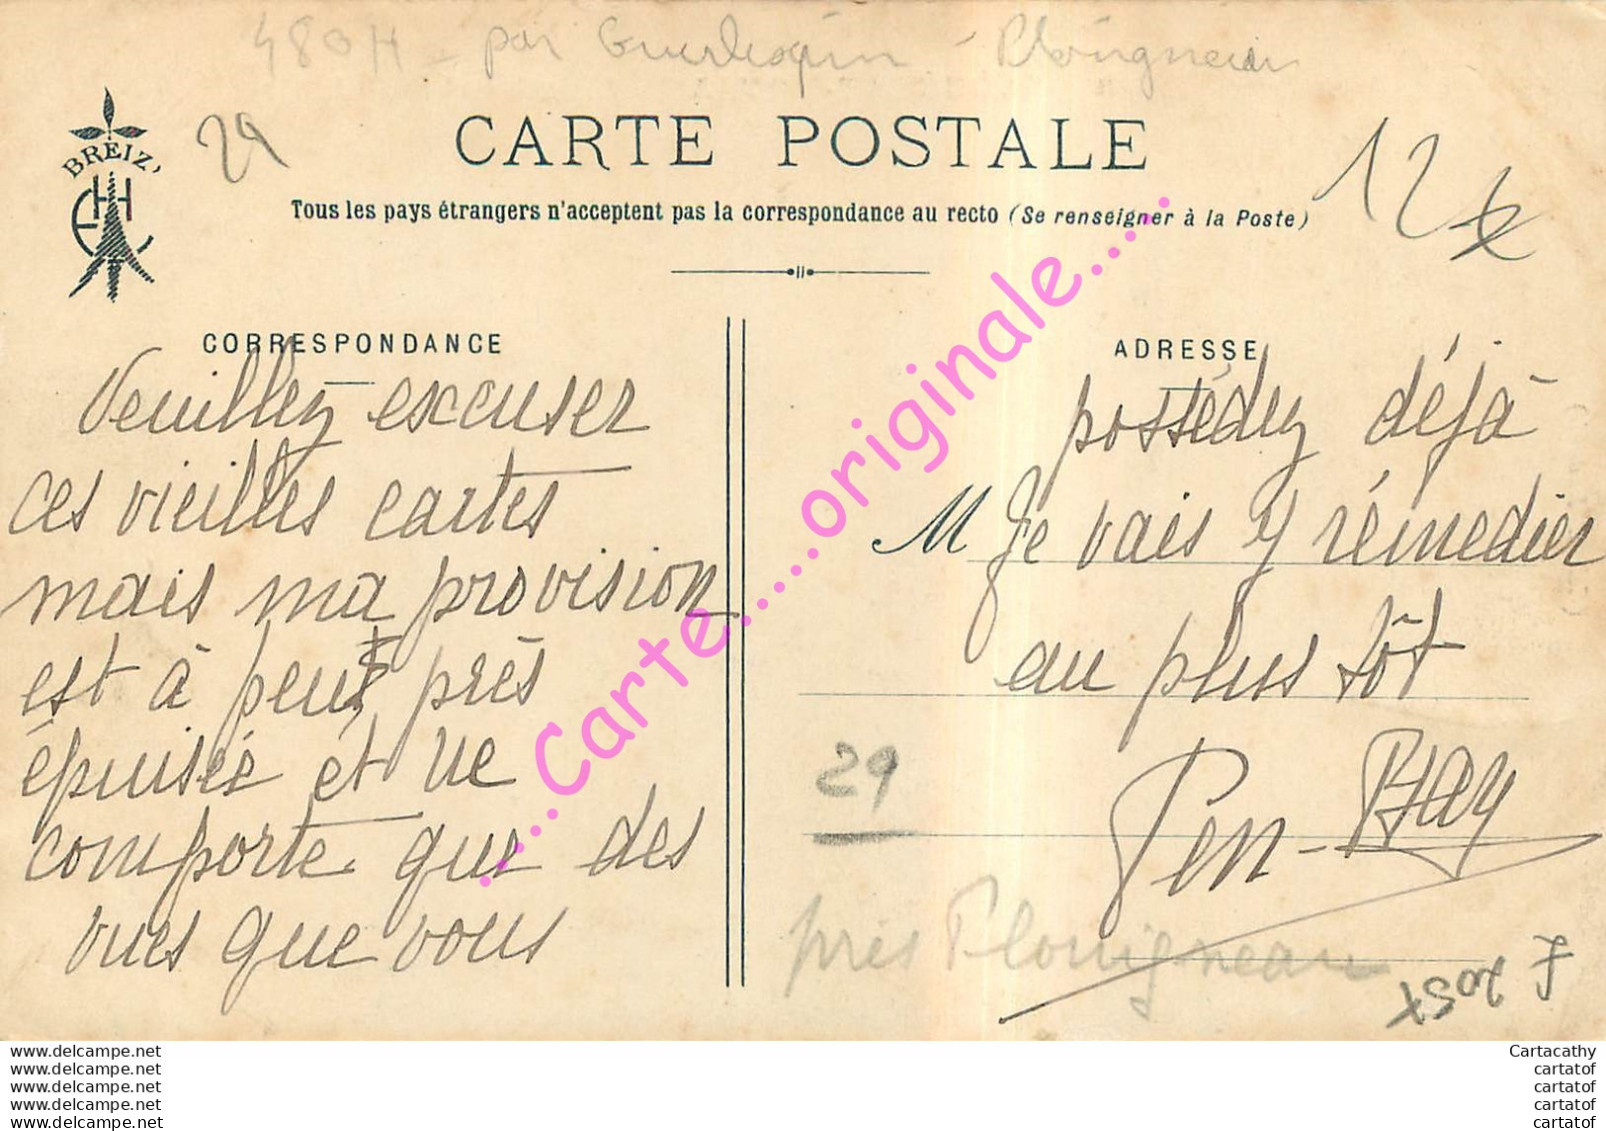 480H - par Guerlesquin - Plouigneau
BREIZ'
29
CARTE POSTALE
12
Tous les pays étrangers n'acceptent pas la correspondance au recto (Se renseigner à la Poste)
CORRESPONDANCE
Veuillez excuser
ces vieilles cartes
mais ma provision
est à peu près
épuisée et ne
comporte que des
vues que vous
ADRESSE
possédez déjà
M
Je vais y rémedier
au plus tôt
Pen-Hay
29
près Plouigneau
...Carte.....originale.....
www.delcampe.net
www.delcampe.net
www.delcampe.net
www.delcampe.net
www.delcampe.net
Cartacathy
cartatof
cartatof
cartatof
cartatof